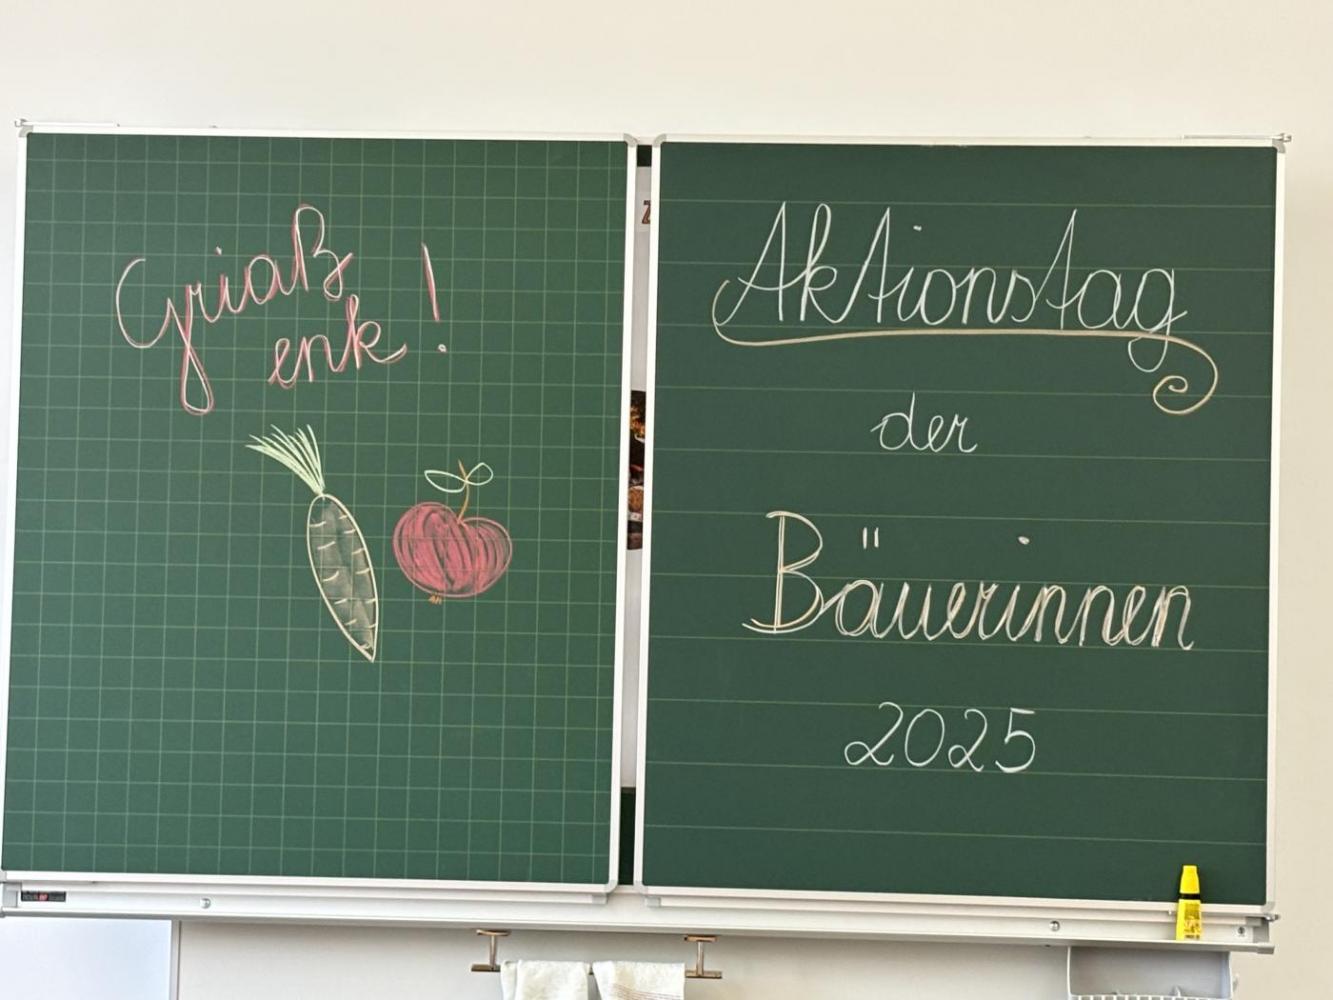 Griaß
enk!
Aktionstag
der
Bäuerinnen
2025